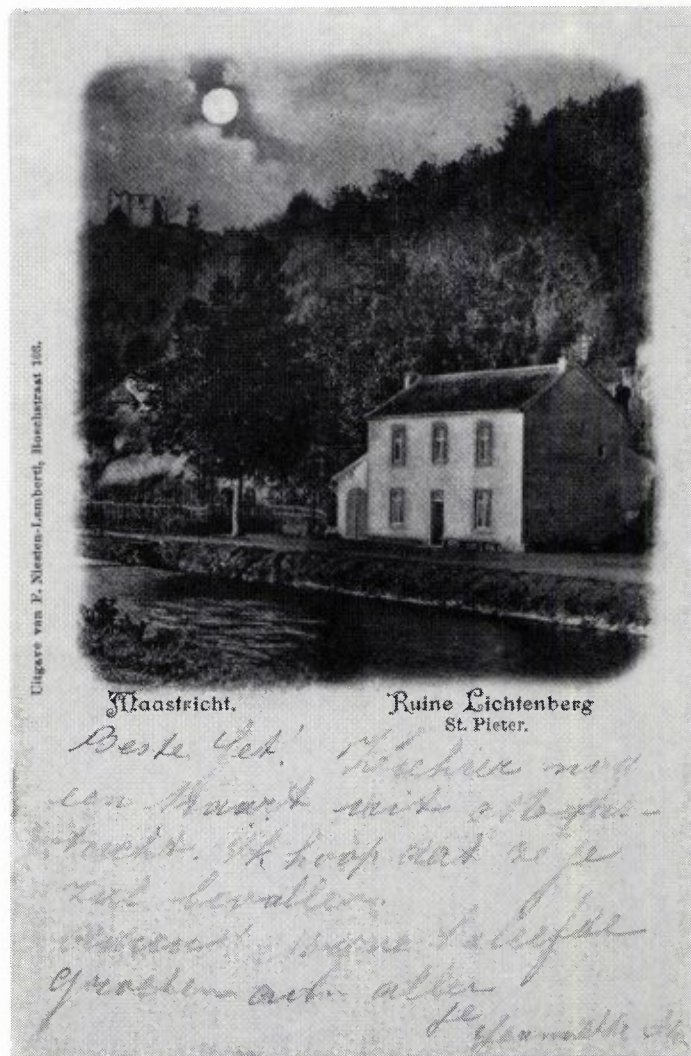 Uitgave van F. Niesten-Lamberti, Boschstraat 106.
Maastricht.
Ruine Lichtenberg
St. Pieter.
Beste Jet!
een kaart uit Maas-
tricht. Ik hoop dat ze je
zal bevallen.
beleefde
Groeten aan allen
je